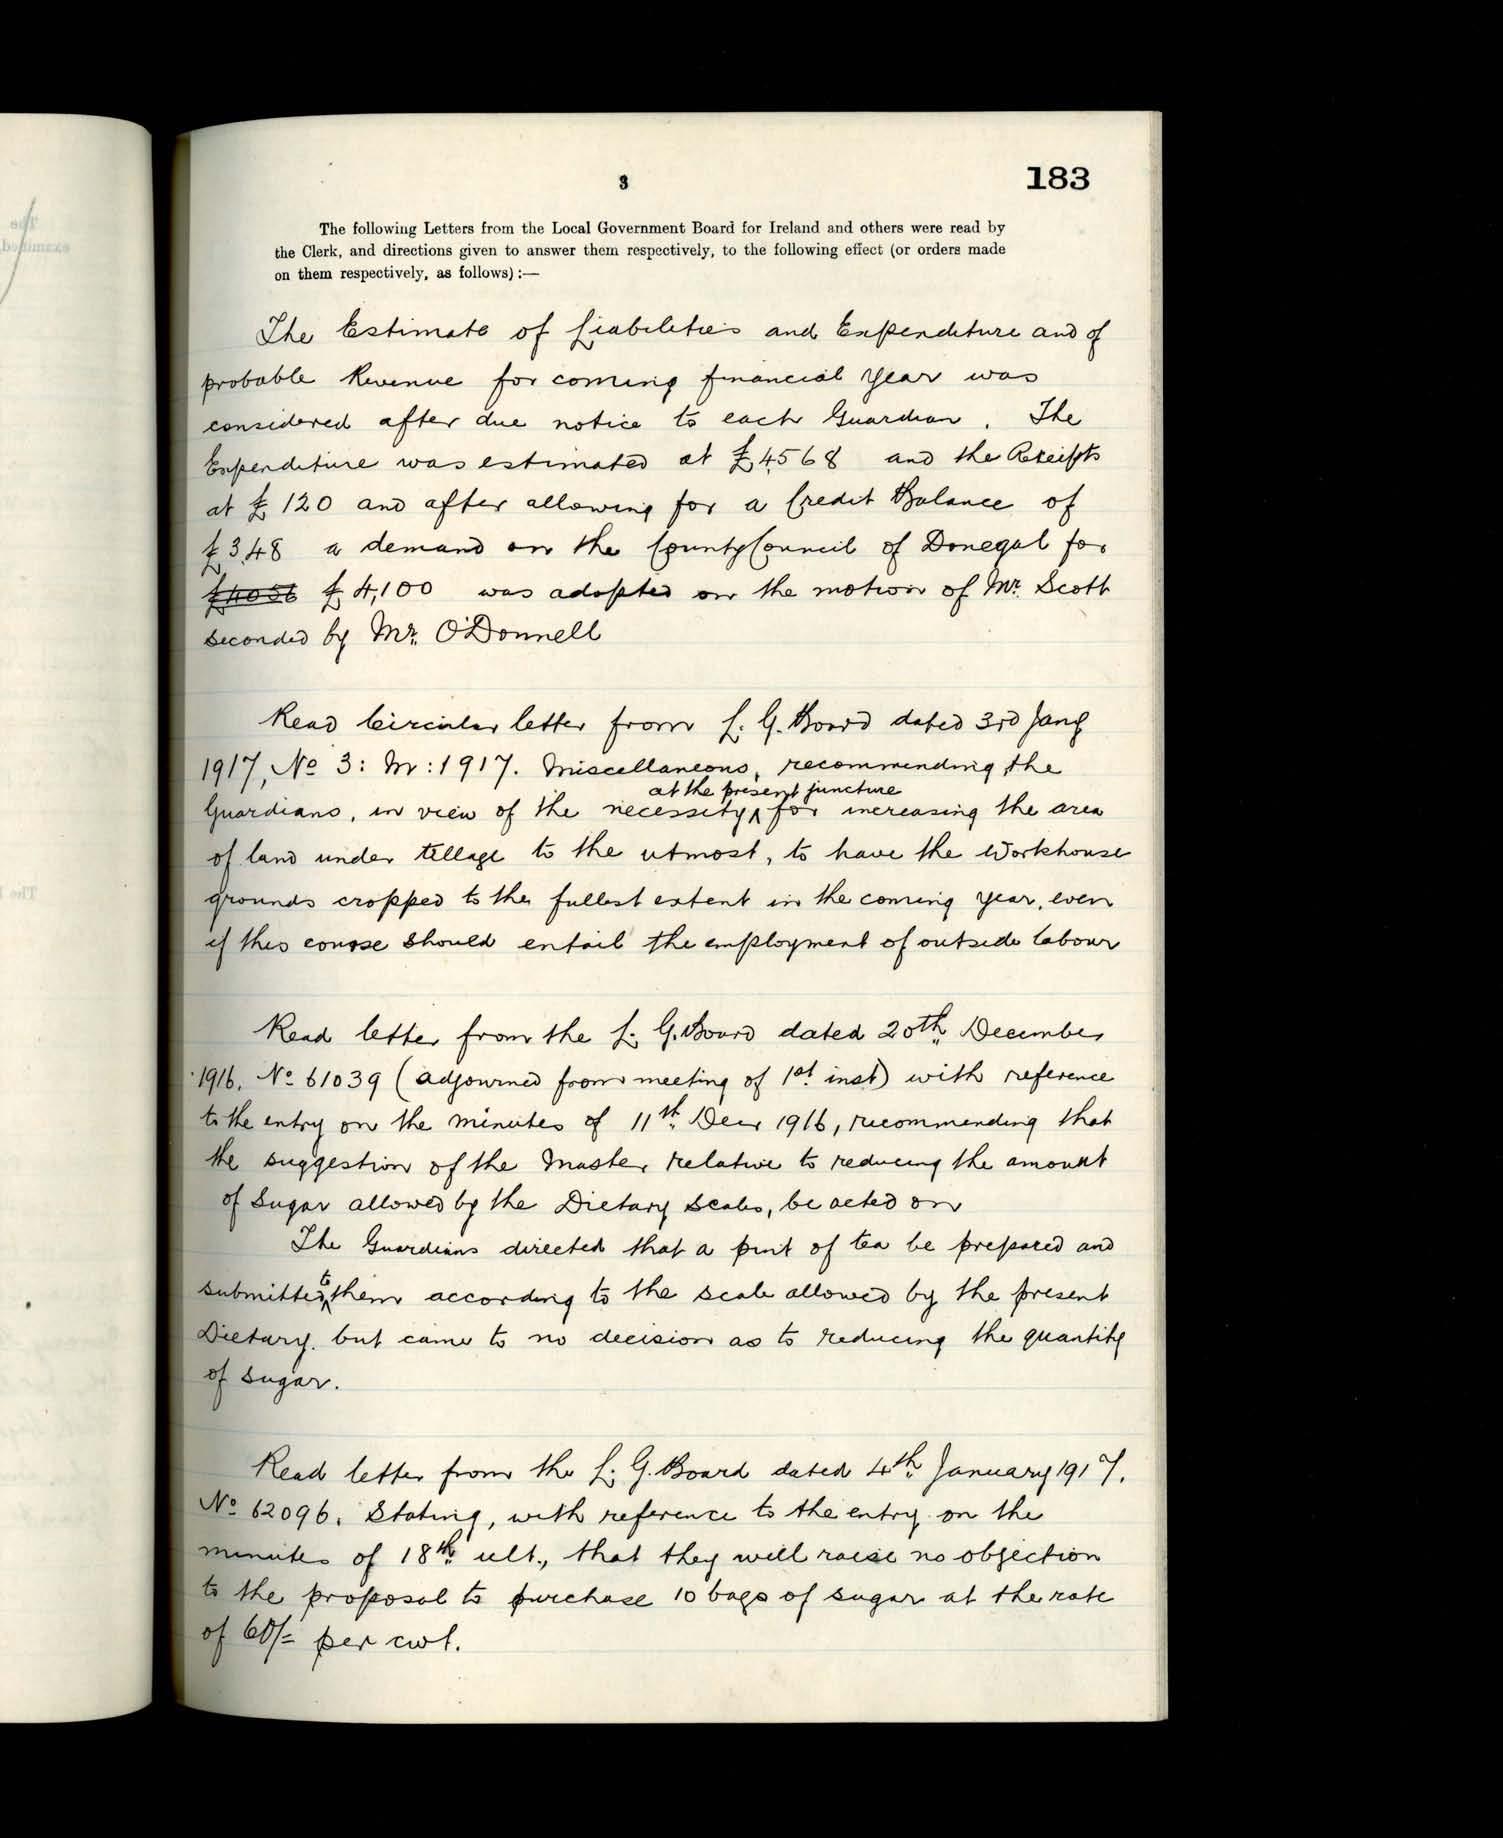 3
183
The following Letters from the Local Government Board for Ireland and others were read by
the Clerk, and directions given to answer them respectively, to the following effect (or orders made
on them respectively, as follows) :—
The Estimate of Liabilities and Expenditure and of
probable Revenue for coming financial year was
considered after due notice to each Guardian. The
Expenditure was estimated at £4568 and the Receipts
at £120 and after allowing for a Credit Balance of
£348 a demand on the County Council of Donegal for
£4056 £4,100 was adopted on the motion of Mr. Scott
seconded by Mr. O'Donnell
Read Circular letter from L. G. Board dated 3rd Jany
1917, No 3: M: 1917. Miscellaneous, recommending the
at the present juncture
Guardians, in view of the necessity ^ for increasing the area
of land under tillage to the utmost, to have the Workhouse
grounds cropped to the fullest extent in the coming year, even
if this course should entail the employment of outside labour
Read letter from the L. G. Board dated 20th December
1916. No 61039 (adjourned from meeting of 1st inst) with reference
to the entry on the minutes of 11th Decr 1916, recommending that
the suggestion of the Master relative to reducing the amount
of sugar allowed by the Dietary scales, be acted on
The Guardians directed that a pint of tea be prepared and
submitted ^to them according to the scale allowed by the present
Dietary. but came to no decision as to reducing the quantity
of sugar.
Read letter from the L. G. Board dated 4th January 1917.
No 62096. Stating, with reference to the entry on the
minutes of 18th ult., that they will raise no objection
to the proposal to purchase 10 bags of sugar at the rate
of 60/= per cwt.